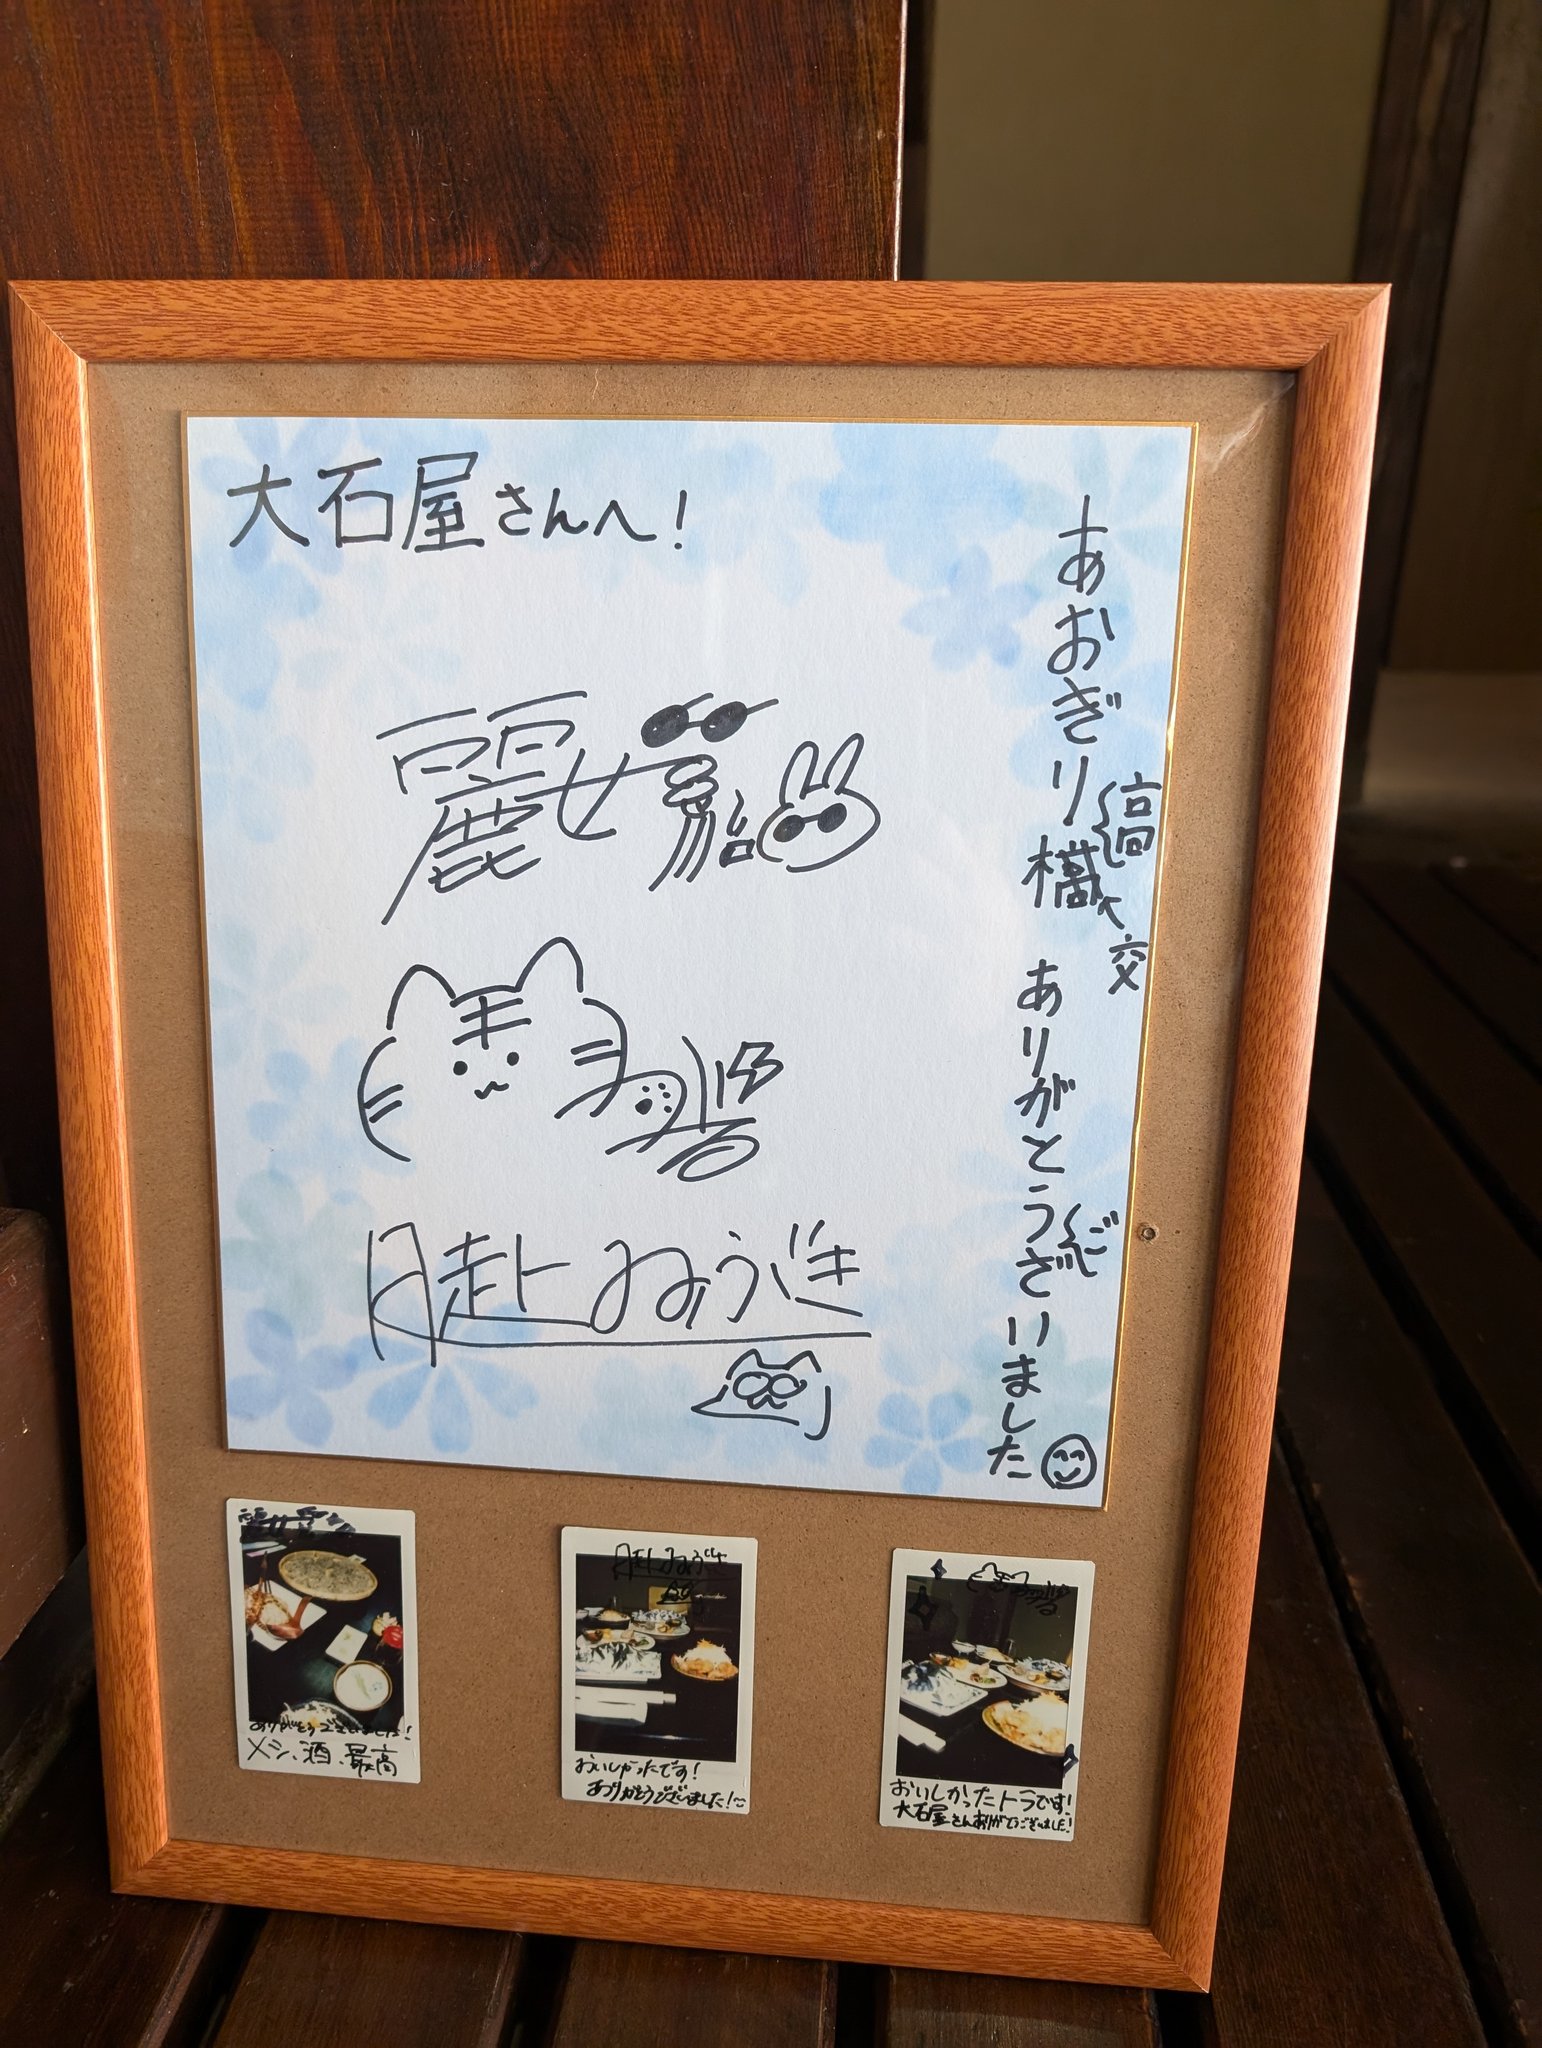 大石屋さんへ!
あおぎり高校 ありがとうございました
麗女
月赴ゐぶき
ありがとうございました!
メシ、酒、最高
月赴ゐぶき
おいしかったです!
ありがとうございました!
おいしかったトラです!
大石屋さんありがとうございました!